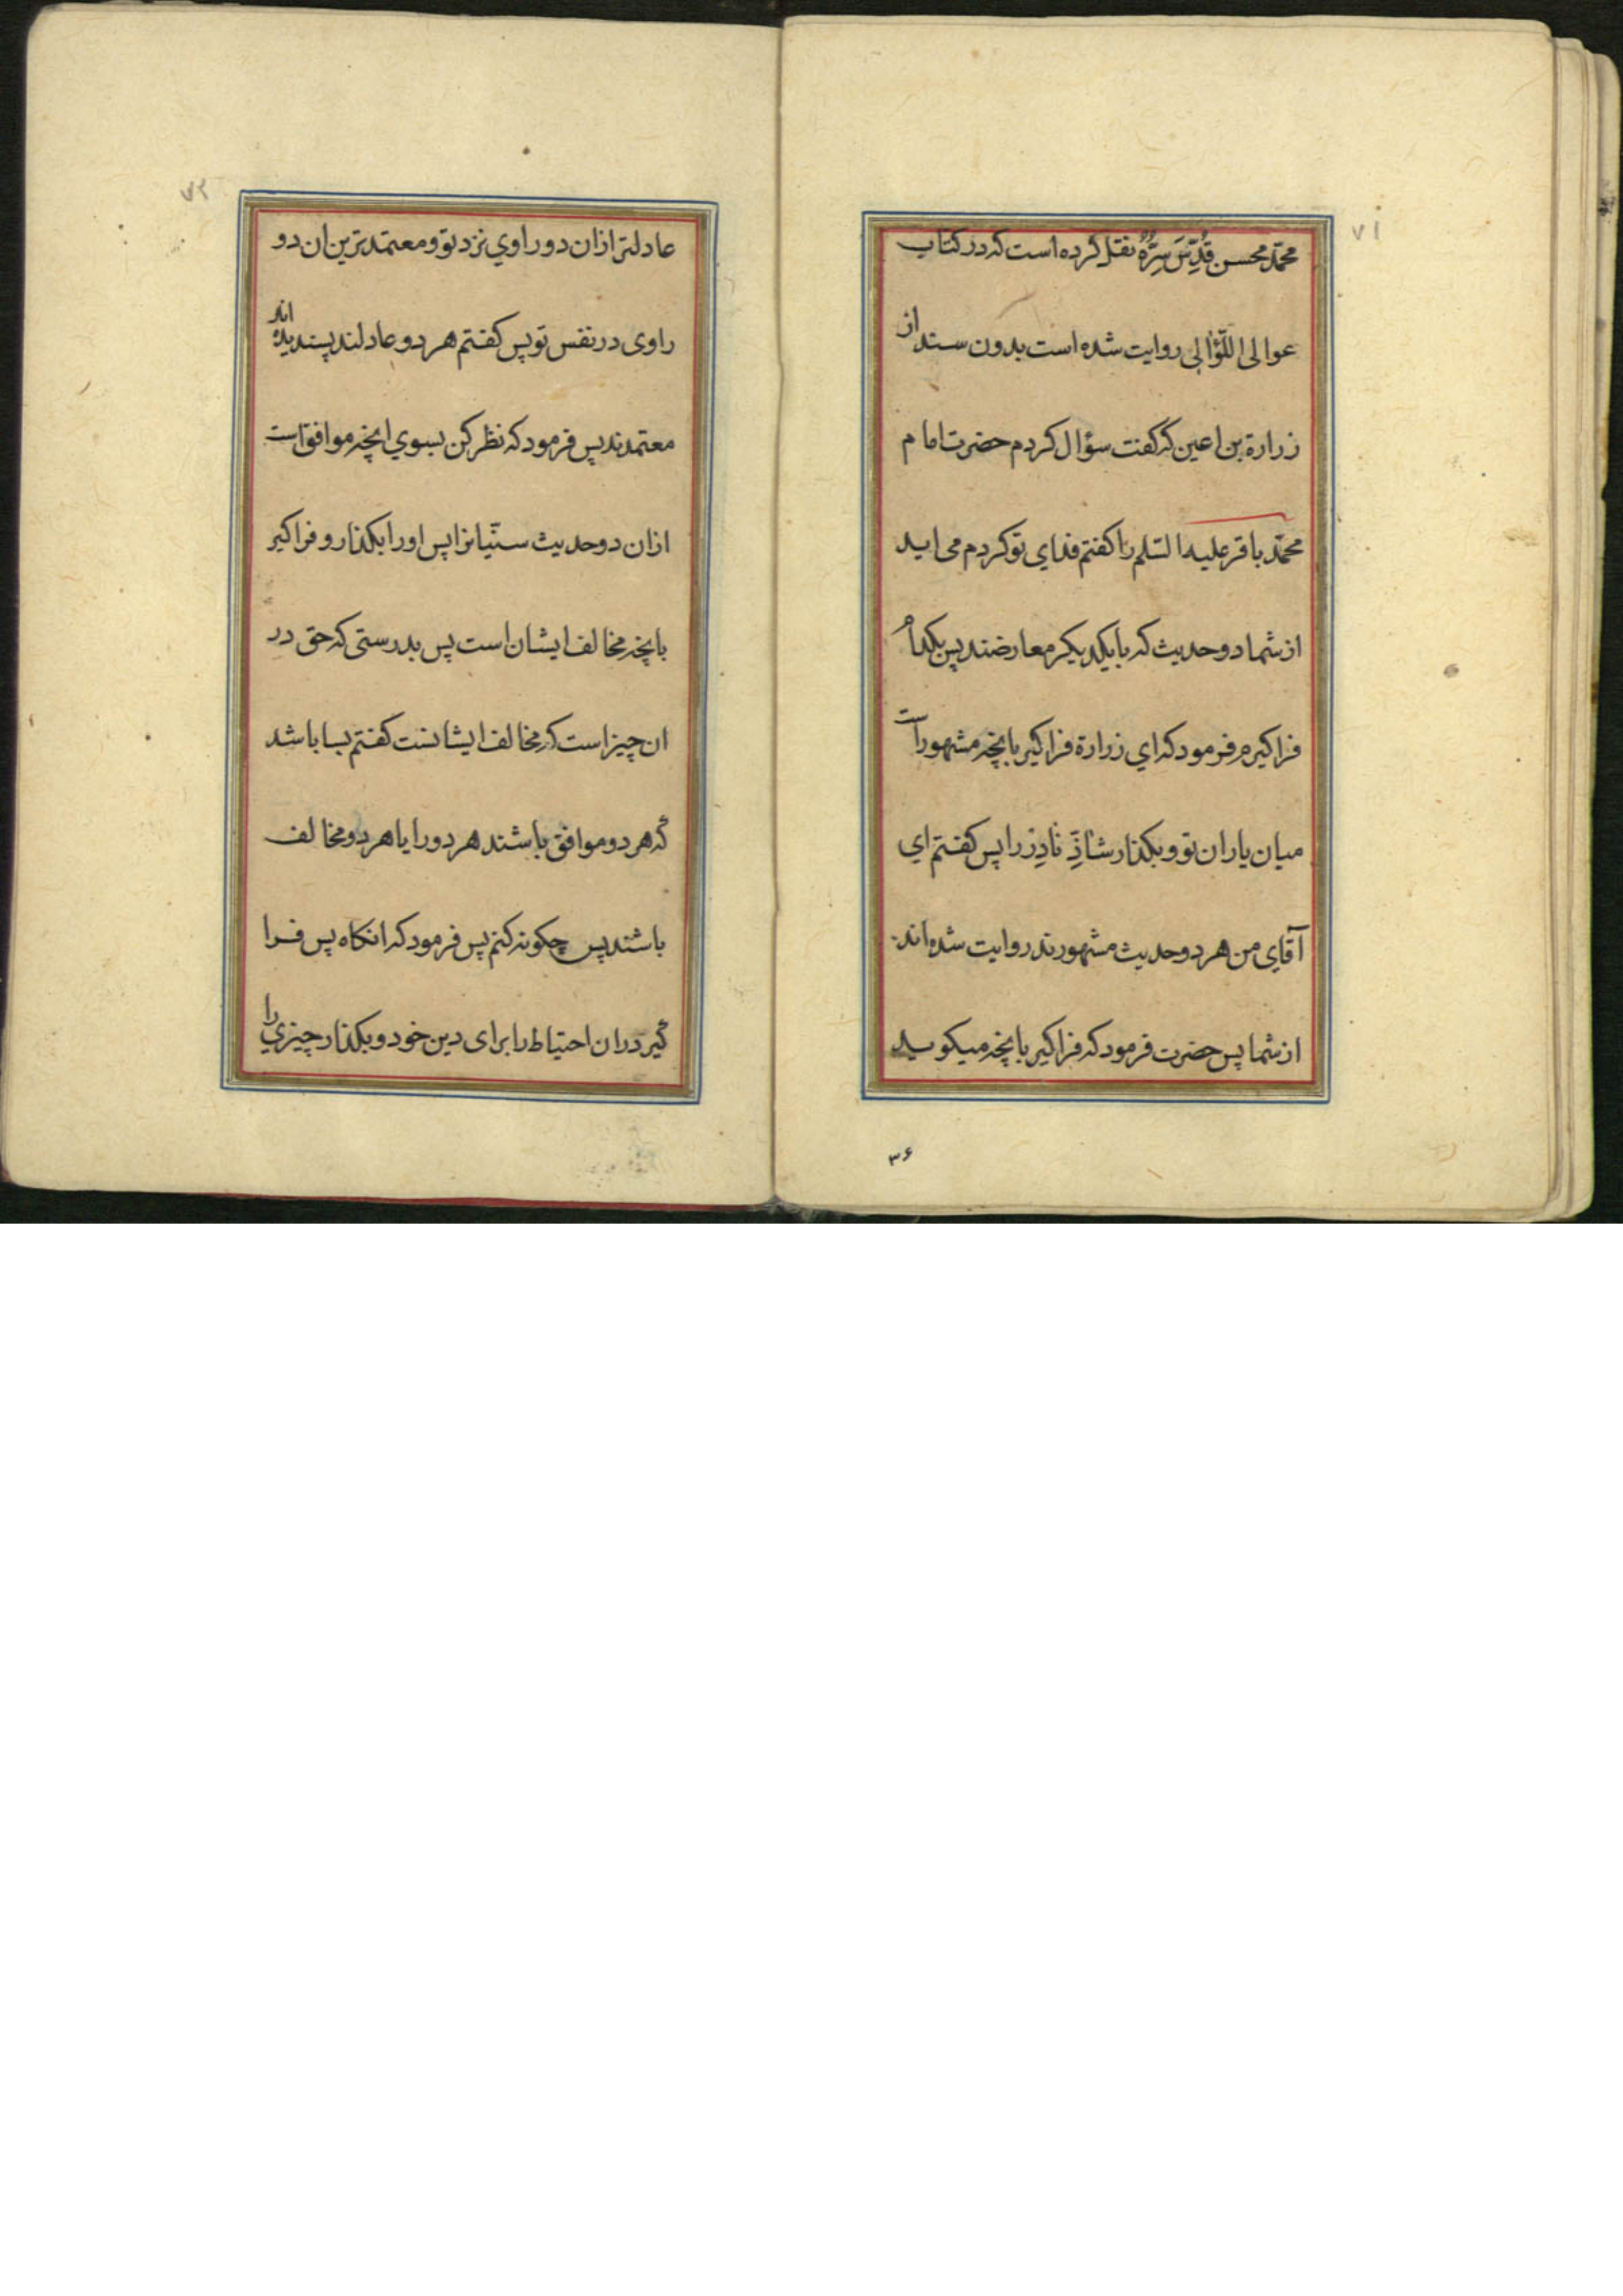 ۷۱
محمّد محسن قُدِّسَ سِرُّهُ نقل كرده است كه در كتاب
عوالى اللّؤالى روايت شده است بدون سند از
زرارة بن اعين كه كفت سؤال كردم حضرت امام
محمّد باقر عليه السّلم را كفتم فداى تو كردم مى ايد
از شما دو حديث كه با يكديكر معارضند پس بكدام
فرا كيرم فرمود كه اي زرارة فرا كير بانچه مشهور است
ميان ياران تو و بكذار شاذِّ نادِر را پس كفتم اي
آقاى من هر دو حديث مشهورند روايت شده اند
از شما پس حضرت فرمود كه فرا كير بانچه ميكويد
۳۶
۷۲
عادلتر ازان دو راوي نزد تو و معتمدترين ان دو
راوى در نفس تو پس كفتم هر دو عادلند پسنديده اند
معتمدند پس فرمود كه نظر كن بسوي انچه موافق است
ازان دو حديث سنّيانرا پس اورا بكذار و فرا كير
بانچه مخالف ايشان است پس بدرستى كه حق در
ان چيز است كه مخالف ايشانست كفتم بسا باشد
كه هر دو موافق باشند هر دو را يا هر دو مخالف
باشند پس چكونه كنم پس فرمود كه انكاه پس فرا
كير دران احتياط را براى دين خود و بكذار چيزي را